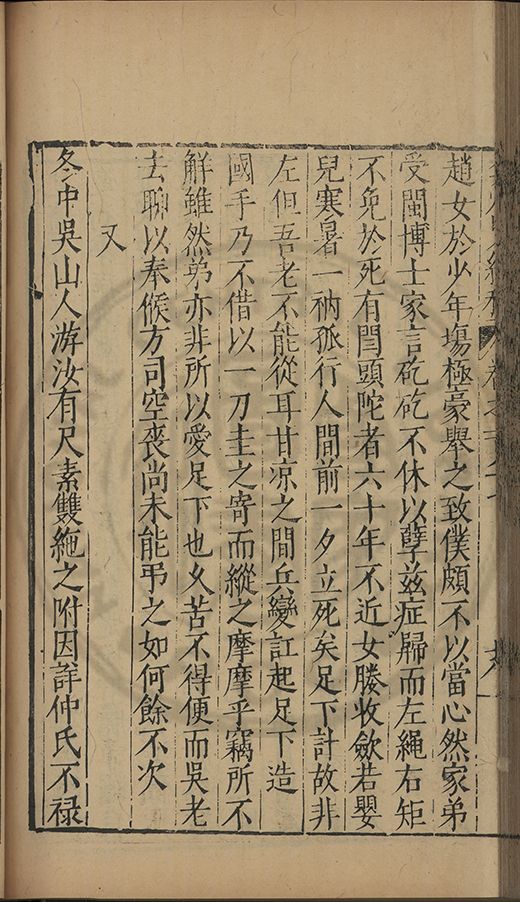 趙女於少年塲極豪舉之致僕頗不以當心然家弟
受閩博士家言矻矻不休以孽兹症歸而左繩右矩
不免於死有閆頭陀者六十年不近女媵收歛若嬰
兒寒暑一衲孤行人間前一夕立死矣足下計故非
左但吾老不能從耳甘凉之間兵變訌起足下造
國手乃不借以一刀圭之寄而縱之摩摩乎竊所不
解雖然弟亦非所以愛足下也久苦不得便而吳老
去聊以奉候方司空喪尚未能弔之如何餘不次
又
冬中吳山人游汝有尺素雙絁之附因詳仲氏不禄